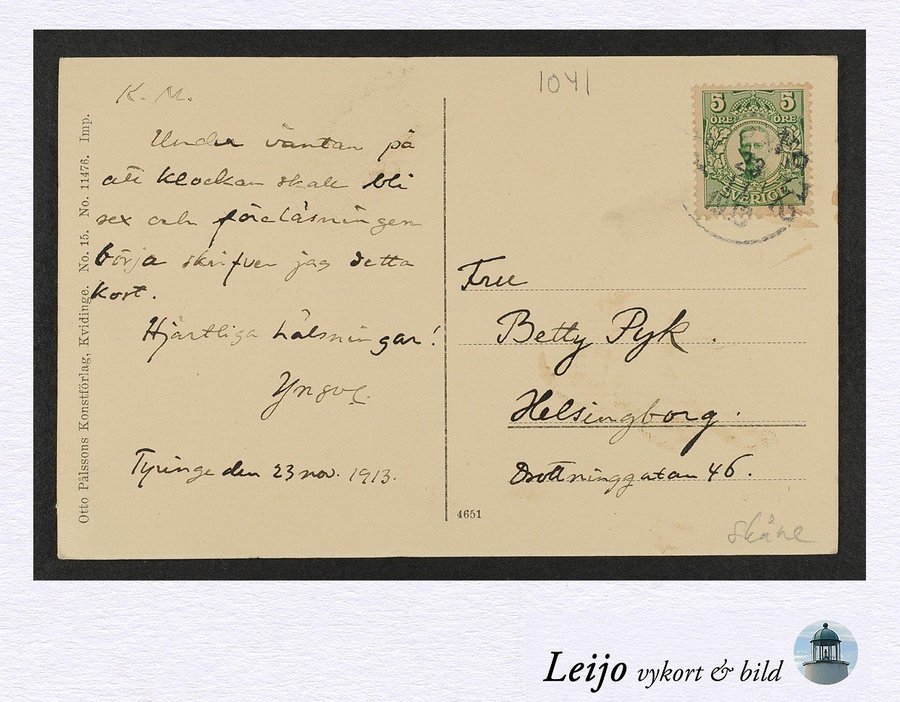 1041
K. M.
Under väntan på
att klockan skall bli
sex och föreläsningen
börja skrifver jag detta
kort.
Hjärtliga hälsningar!
Yngve.
Tyringe den 23 nov. 1913.
Otto Pålssons Konstförlag, Kvidinge. No. 15. No. 11476. Imp.
5 5
ÖRE ÖRE
SVERIGE
Fru
Betty Pyk.
Helsingborg.
Drottninggatan 46.
4651
Skåne
Leijo vykort & bild